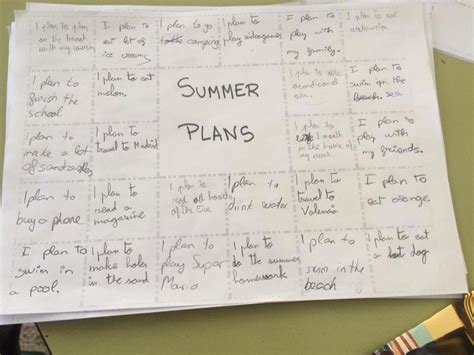 I plan to play
on the beach
with my cousins
I plan to
eat lot of
ice creams
I plan to go
to camping
I plan to
play videogames
I plan to
play with
my family.
I plan to eat
I plan to
finish the
school
I plan to eat
melon.
SUMMER
PLANS
I plan to use
air.
I plan to
swim in the
sea
I plan to
make a lot
of
I plan to
travel to Madrid
I plan to
1 month
in the house of
my aunt.
I plan to
play with
my friends.
I plan to
buy a phone
I plan to
read a
magazine
I plan to
all books
of the
I plan to
drink water
I plan to
travel to
Valencia
I plan to
eat orange.
I plan to
swim in
a pool.
I plan to
make holes
in the sand
I plan to
play Super
Mario
I plan to
do the summer
homework
I plan to
swim in the
beach
I plan to eat
a hot dog